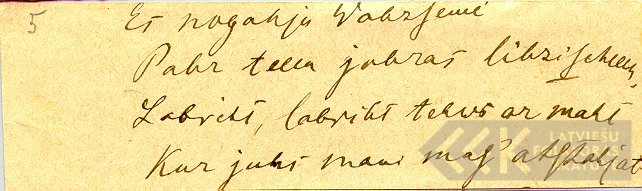 5
Es nogahju Vahrsemē
Pahr teem juhras lihzischeem,
Labriht, labriht tehws ar maht
Kur juhs mani mas' atstahjat
LATVIEŠU